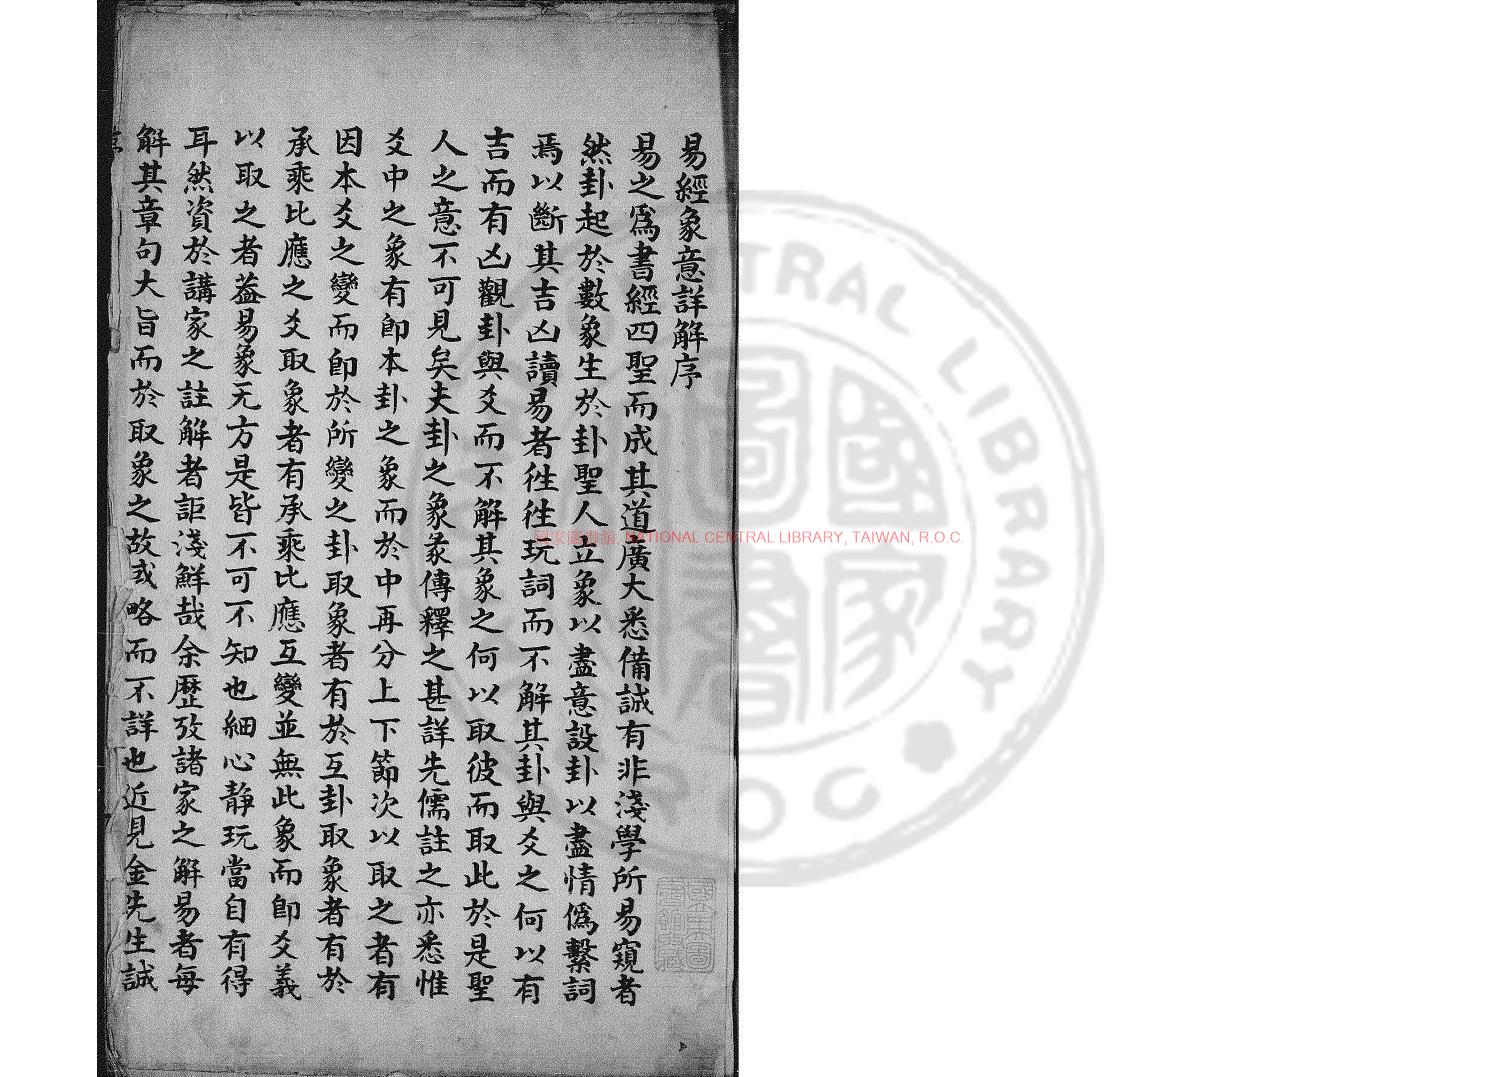 易經象意詳解序
易之爲書經四聖而成其道廣大悉備誠有非淺學所易窺者
然卦起於數象生於卦聖人立象以盡意設卦以盡情僞繫詞
焉以斷其吉凶讀易者徃徃玩詞而不解其卦與爻之何以有
吉而有凶觀卦與爻而不解其象之何以取彼而取此於是聖
人之意不可見矣夫卦之象彖傳釋之甚詳先儒註之亦悉惟
爻中之象有卽本卦之象而於中再分上下節次以取之者有
因本爻之變而卽於所變之卦取象者有於互卦取象者有於
承乘比應之爻取象者有承乘比應互變並無此象而卽爻義
以取之者葢易象无方是皆不可不知也細心靜玩當自有得
耳然資於講家之註解者詎淺鮮哉余歷攷諸家之解易者每
解其章句大旨而於取象之故或略而不詳也近見金先生誠
國家圖書館, NATIONAL CENTRAL LIBRARY, TAIWAN, R.O.C.